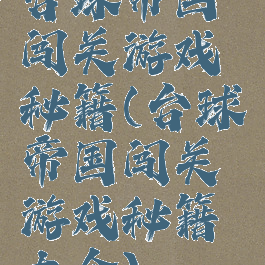 台球帝国
闯关游戏
秘籍(台球
帝国闯关
游戏秘籍
大全)